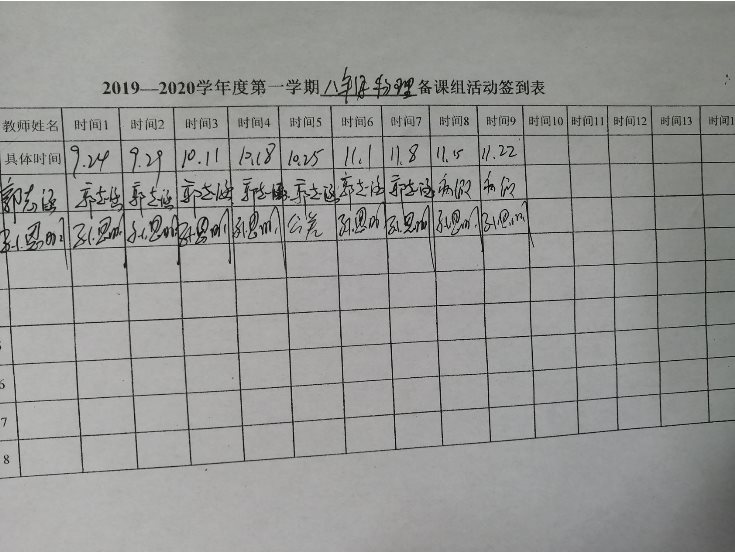 2019—2020学年度第一学期八年级物理备课组活动签到表
教师姓名 时间1 时间2 时间3 时间4 时间5 时间6 时间7 时间8 时间9 时间10 时间11 时间12 时间13 时间1
具体时间 9.24 9.29 10.11 10.18 10.25 11.1 11.8 11.15 11.22
郭志涵 郭志涵 郭志涵 郭志涵 郭志涵 郭志涵 郭志涵 郭志涵 病假 病假
孙恩明 孙恩明 孙恩明 孙恩明 孙恩明 公差 孙恩明 孙恩明 孙恩明 孙恩明
6
7
8